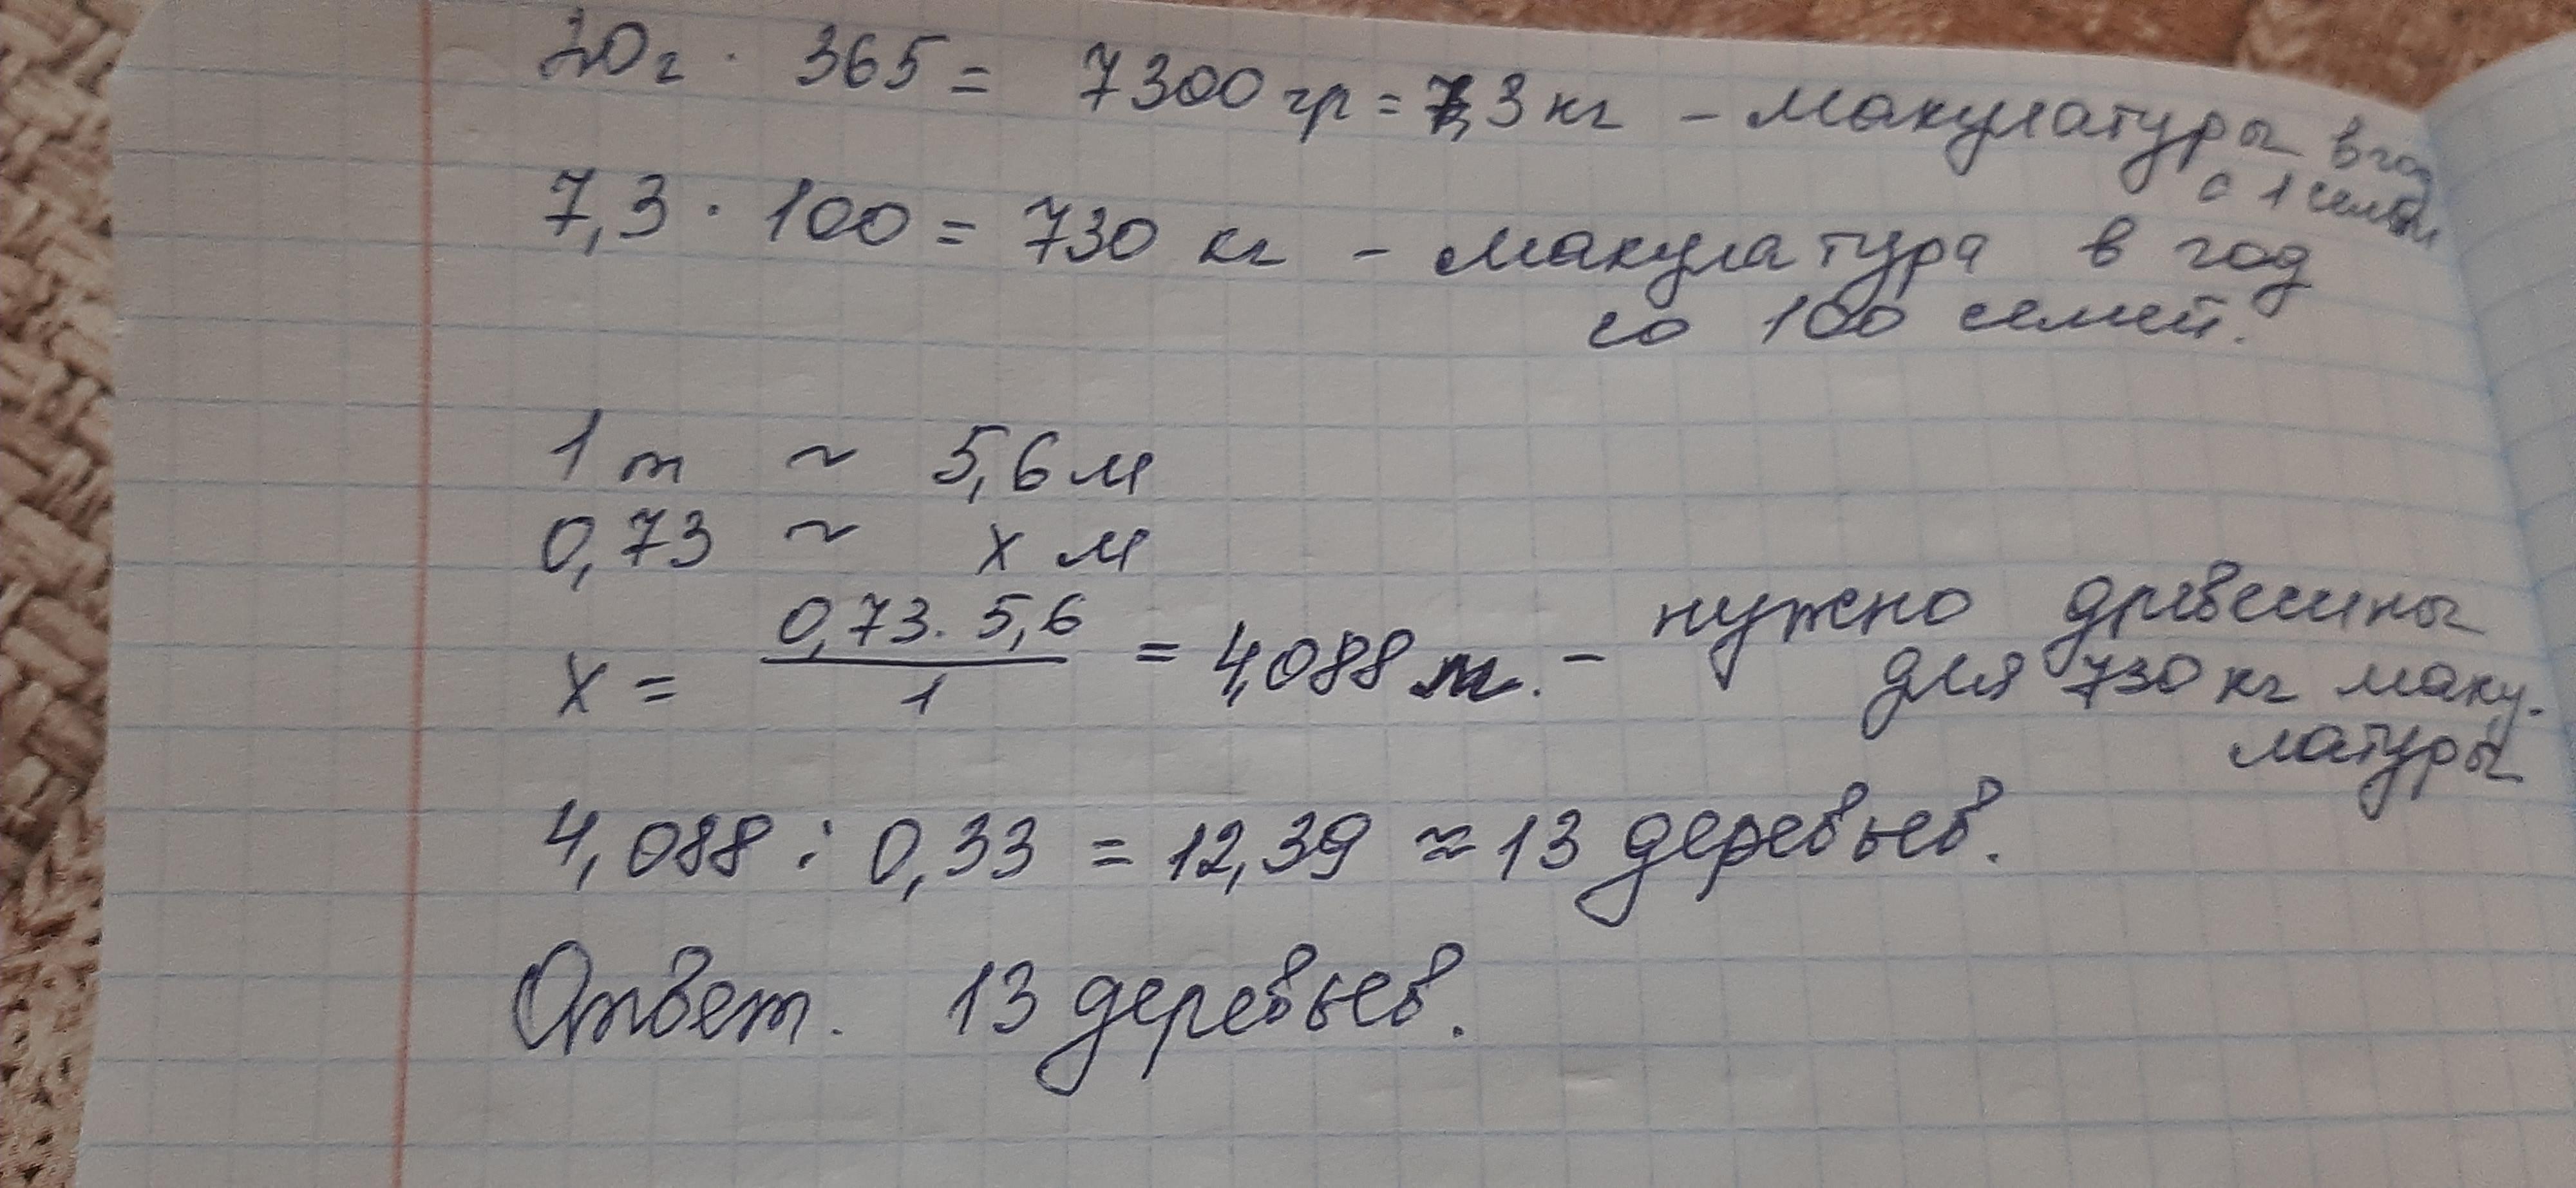 20г · 365 = 7300 гр = 7,3 кг – макулатуры в год
с 1 семьи
7,3 · 100 = 730 кг – макулатура в год
со 100 семей.
1 т ~ 5,6 м
0,73 ~ х м
х = 0,73 · 5,6 / 1 = 4,088 м. – нужно древесины
для 730 кг маку-
латуры
4,088 : 0,33 = 12,39 ≈ 13 деревьев.
Ответ. 13 деревьев.